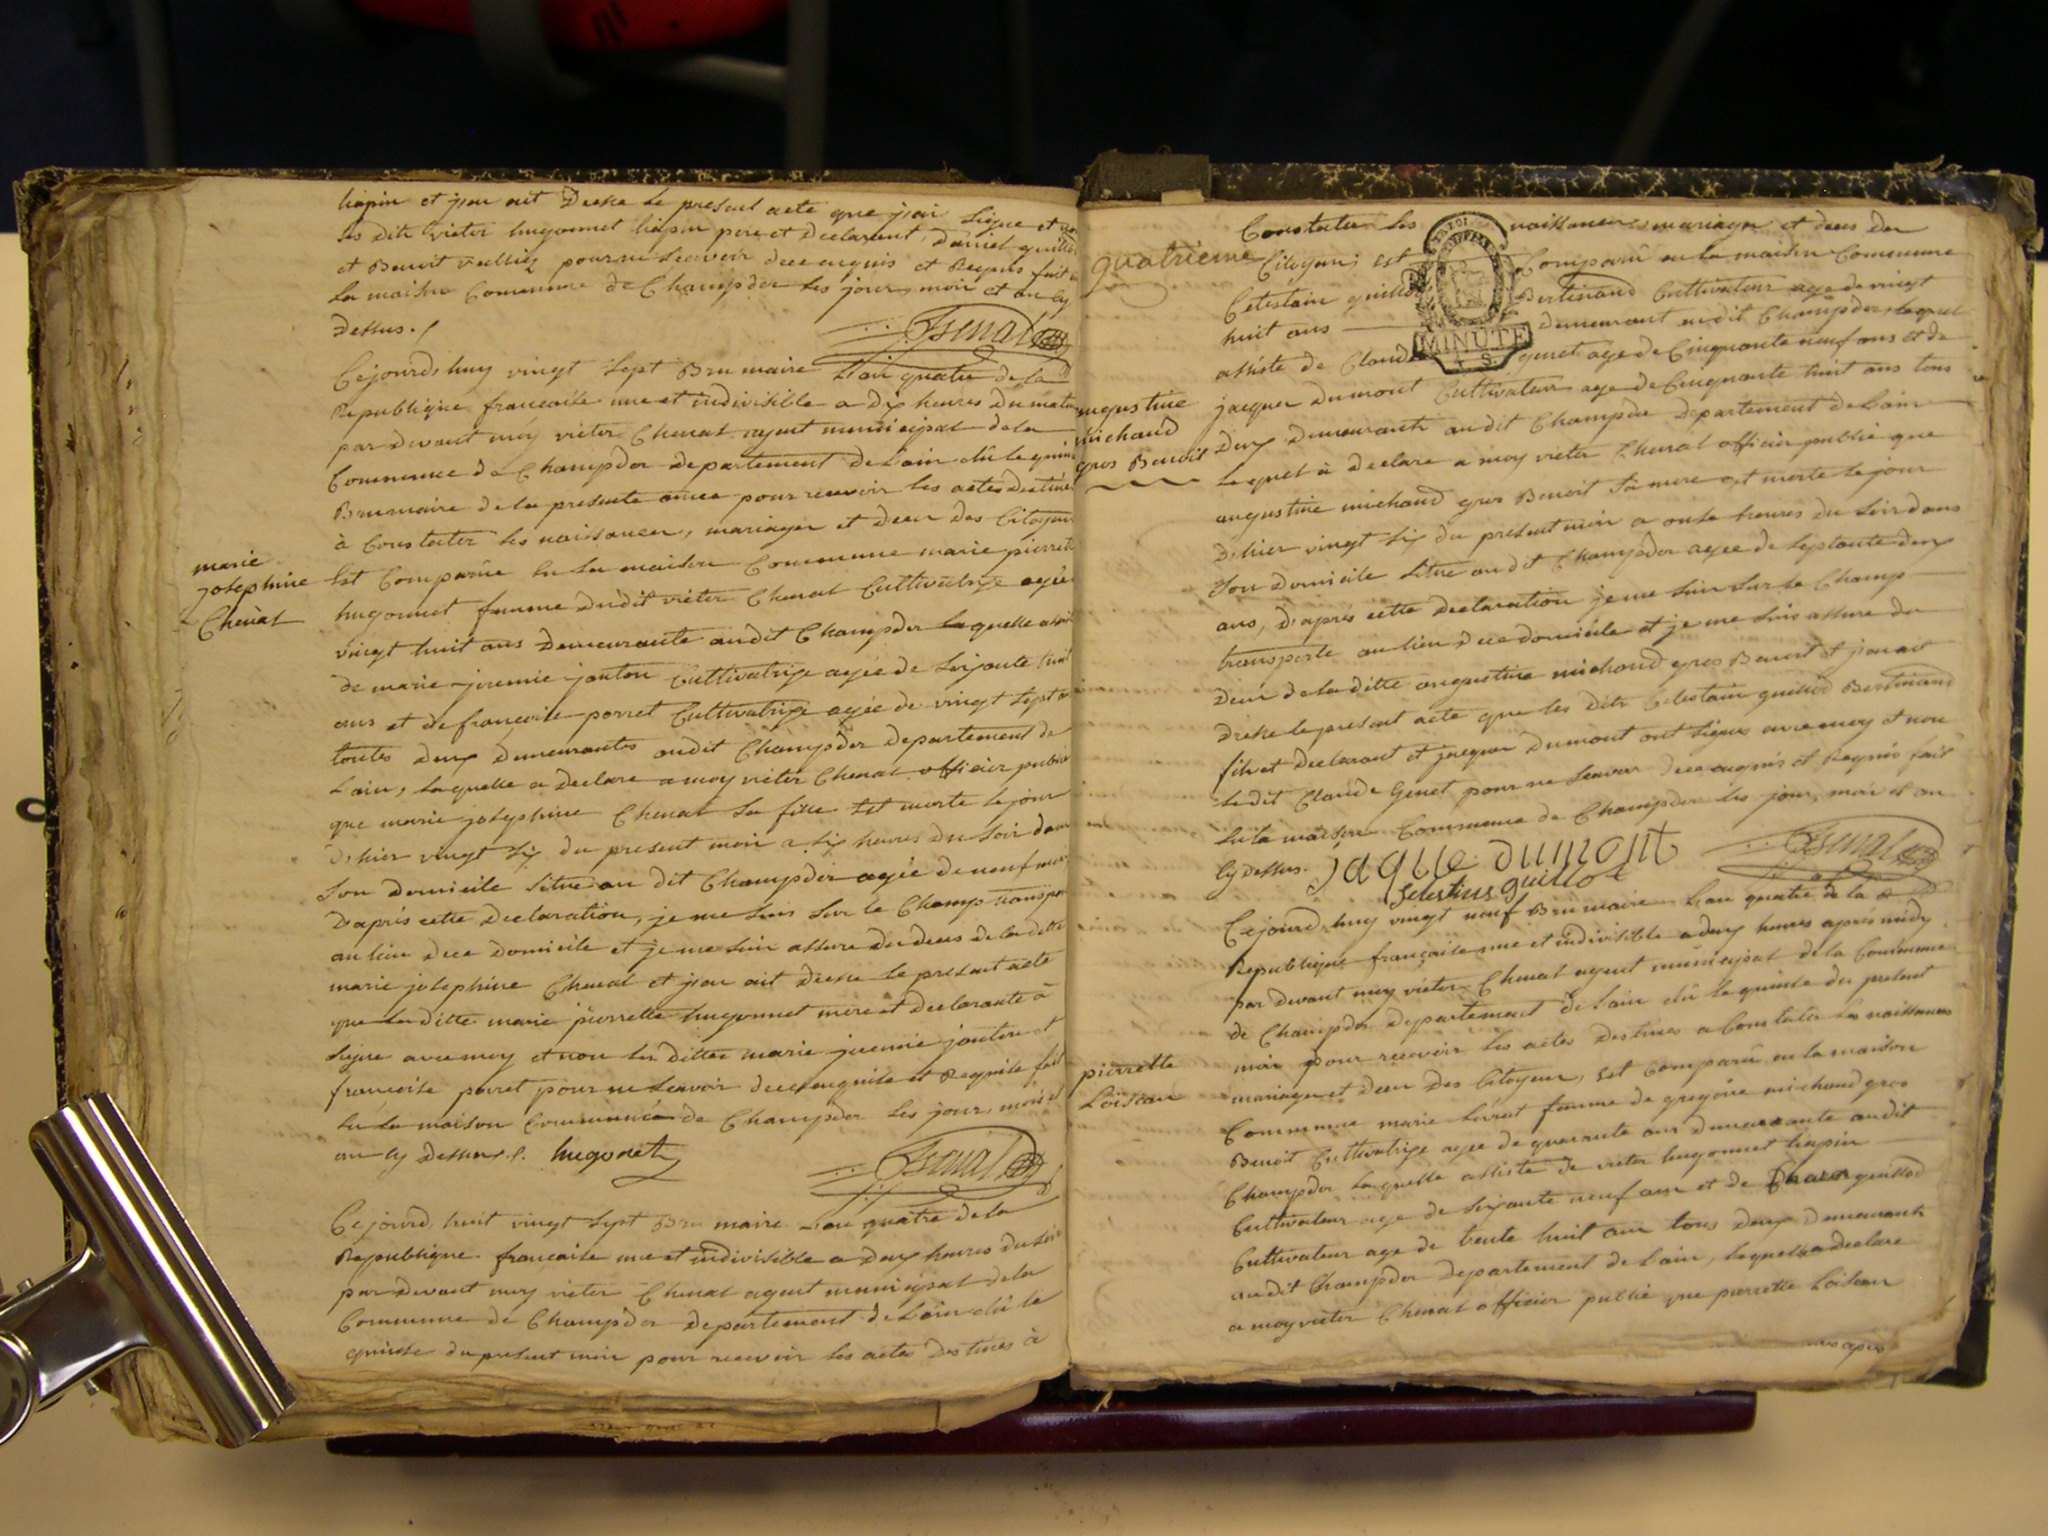 liapin et jeu ait Dresse le present acte que j'ai Signe et non
les dits victor hugonnet liapin pere et Declarant, Daniel guillod
et Benoit vuilliez pour ne Scavoir dece enquis et Requis fait a
la maison Commune de Champdor les jour, mois et an cy
Dessus./
Cejourdhuy vingt Sept Brumaire L'an quatre de la
Republique francaise une et indivisible a dix heures Du matin
par Devant moy victor Chenal agent municipal de la
Commune de Champdor Departement De L'ain elû le quinze
Brumaire de la presente annee pour recevoir les actes Destinés
à Constater les naissances, mariages et deces Des Citoyens
marie
Josephine
Chenal
Est Comparûe en la maison Commune marie pierrette
hugonnet femme Dudit victor Chenal Cultivatrixe agée
vingt huit ans Demeurante audit Champdor laquelle assisté
de marie jeremie jouton Cultivatrixe agée de Soixante huit
ans et de francoise porret Cultivatrixe agée de vingt Sept ans
toutes deux Demeurantes audit Champdor Departement de
L'ain, laquelle a Declare a moy victor Chenal officier public
que marie josephine Chenal Sa fille Est morte le jour
D'hier vingt Six du present mois a Six heures Du Soir dans
Son Domicile Situé au dit Champdor agée de neuf mois
D'apris cette Declaration, je me Suis Sur le Champ transporté
au lieu Dece Domicile et je me Suis assure Du deces de la ditte
marie josephine Chenal et jeu ait Dresse le present acte
que la Ditte marie pierrette hugonnet mere et declarante à
Signe avec moy et non les dittes marie jeremie jouton et
francoise porret pour ne Scavoir dece enquise et Requise fait
En la maison Commune de Champdor les jour, mois et
an cy Dessus./. hugonet
Chenal
Cejourd huit vingt Sept Bru maire L'an quatre de la
Republique francaise une et indivisible a Deux heures du Soir
par Devant moy victor Chenal agent municipal de la
Commune de Champdor Departement de L'ain elû le
quinze du present mois pour recevoir les actes Destines à
Constater les naissances mariages et deces des
quatrieme
Citoyens, est Comparû en la maison Commune
Celestain guillod Bertinand Cultivateur agé de vingt
huit ans Demeurant audit Champdor, lequel
assiste de Claude genet age de Cinquante neuf ans et de
jacques Dumont Cultivateur age de Cinquante huit ans tous
augustine
michaud
gros Benoit
Deux Demeurants audit Champdor Departement de L'ain
Lequel à Declare a moy victor Chenal officier public que
augustine michaud gros Benoit Sa mere est morte le jour
D'hier vingt Six du present mois a onse heures Du Soir dans
Son Domicile Situe audit Champdor agée de Septante deux
ans, D'apris cette Declaration je me Suis Sur le Champ
transporte au lieu Dece domicile et je me Suis assure du
Deces de la ditte augustine michaud gros Benoit et jeu ait
Dresse le present acte que les Dits Celestain guillod Bertinand
fils et Declarant et jacques Dumont ont Signes avec moy et non
Le dit Claude Genet pour ne Scavoir dece enquis et Requis fait
En la maison Commune de Champdor les jour, mois et an
Cy Dessus. jaque Dumont
Chenal
Selestins guillot
Cejourdhuy vingt neuf Brumaire L'an quatre de la
Republique francaise une et indivisible a deux heures apres midy
par Devant moy victor Chenal agent municipal de la Commune
de Champdor Departement De L'ain elû le quinse du present
mois pour recevoir les actes Destines a Constater les naissances
pierrette
Loiseau
mariages et deces Des Citoyens, est Comparûe en la maison
Commune marie femme de gregoire michaud gros
Benoit Cultivatrixe agee de quarante ans Demeurante audit
Champdor laquelle assiste de victor hugonnet liapin
Cultivateur age de Soixante neuf ans et de guillod
Cultivateur age de trente huit ans tous deux Demeurants
audit Champdor Departement de L'ain, laquelle a declare
a moy victor Chenal officier public que pierrette Loiseau
MINUTE